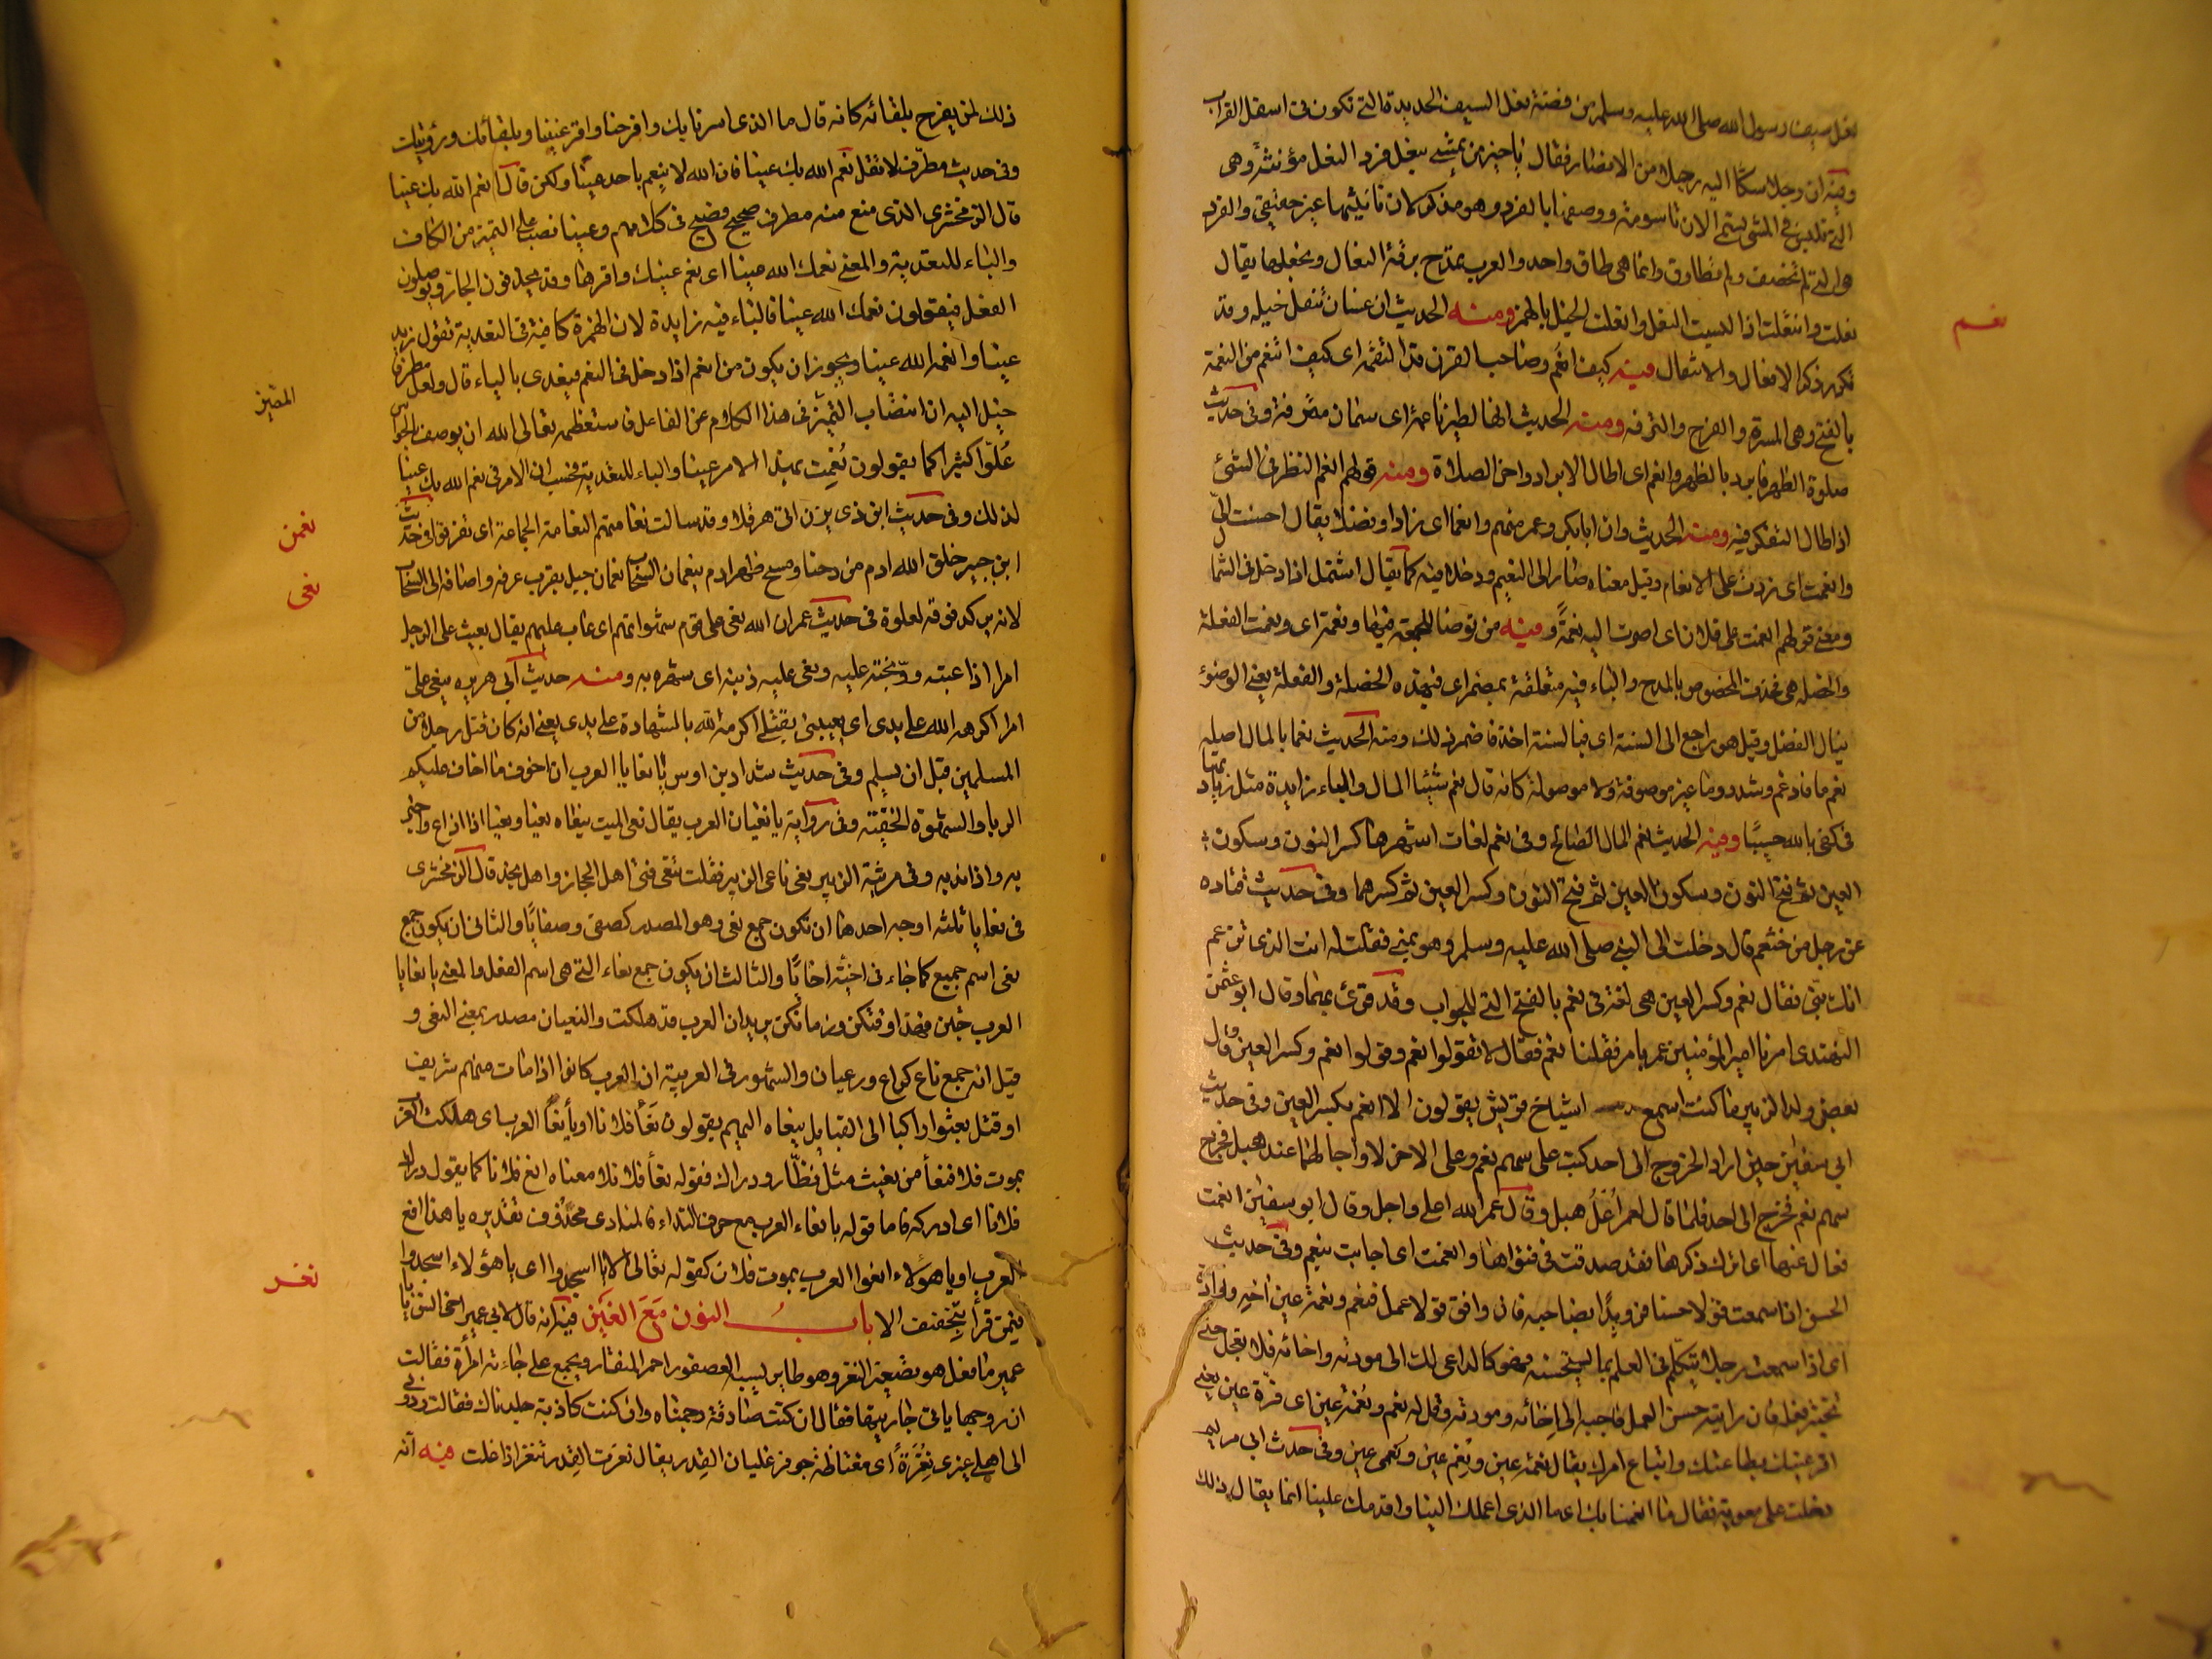 نعل سيف رسول الله صلى الله عليه وسلم من فضة نعل السيف الحديدة التي تكون في اسفل القراب
وفيه ان رجلا شكا اليه رجلا من الانصار فقال يا خير من يمشي بنعل فرد النعل مؤنثة وهي
التي تلبس في المشي تسمى الان تاسومة ووصفها بالفرد وهو مذكر لان تانيثها غير حقيقي والفرد
هي التي لم تخصف ولم تطارق وانما هي طاق واحد والعرب تمدح برقة النعال وتجعلها يقال
نعلت وانتعلت اذا لبست النعل وانعلت الخيل بالهمز ومنه الحديث ان غسان تنعل خيلها وقد
تكرر ذكر الانعال والانتعال فيه كيف انعم وصاحب القرن قد التقمه اي كيف اتنعم من النعمة
نعم
بالفتح وهي المسرة والفرح والترفه ومنه الحديث انها لطير ناعمة اي سمان مترفة وفي حديث
صلوة الظهر فابرد بالظهر وانعم اي اطال الابراد واخر الصلاة ومنه قولهم انعم النظر في الشئ
اذا طال التفكر فيه ومنه الحديث وان ابا بكر وعمر منهم وانعما اي زادا وفضلا يقال احسنت الي
وانعمت اي زدت على الانعام وقيل معناه صارا الى النعيم ودخلا فيه كما يقال اشتمل اذا دخل في الشما
ومعنى قولهم انعمت على فلان اي اصرت اليه نعمة وفيه من توضا للجمعة فبها ونعمت اي ونعمت الفعلة
والخصلة هي فحذف المخصوص بالمدح والباء فيه متعلقة بمضمر اي فبهذه الخصلة والفعلة يعني الوضوء
ينال الفضل وقيل هو راجع الى السنة اي فبالسنة اخذ فاضمر ذلك ومنه الحديث نعما بالمال اصله
نعم ما فادغم وشدد وما غير موصوفة ولا موصولة كانه قال نعم شيئا المال والباء زايدة مثل زيادتها
في كفى بالله حسيبا ومنه الحديث نعم المال الصالح وفي نعم لغات اشهرها كسر النون وسكون
العين ثم فتح النون وسكون العين ثم فتح النون وكسر العين ثم كسرهما وفي حديث قتاده
عن رجل من خثعم قال دخلت الى النبي صلى الله عليه وسلم وهو بمنى فقلت له انت الذي تزعم
انك نبي فقال نعم وكسر العين هي لغة في نعم بالفتح التي للجواب وقد قرئ بهما وقال ابو عثمن
النهدي امرنا امير المؤمنين عمر بامر فقلنا نعم فقال لا تقولوا نعم وقولوا نعم وكسر العين وقال
بعض ولد الزبير ما كنت اسمع اشياخ قريش يقولون الا نعم بكسر العين وفي حديث
ابي سفين حين اراد الخروج الى احد كتب على سهم نعم وعلى الاخر لا واجالهما عند هبل فخرج
سهم نعم فخرج الى احد فلما قال لعمر اعل هبل وقال عمر الله اعلى واجل وقال ابو سفين انعمت
فعال عنها اي اترك ذكرها فقد صدقت في فتواها وانعمت اي اجابت بنعم وفي حديث
الحسن اذا سمعت قولا حسنا فرويدا بصاحبه فان وافق قول عمل فنعم ونعمة عين اخه واوده
اي اذا سمعت رجلا يتكلم في العلم بما يستحسنه فهو كالداعي لك الى مودته واخائه فلا تعجل حتى
تختبر فعله فان رايته حسن العمل فاجبه الى اخائه ومودته وقل له نعم ونعمة عين اي قرة عين يعني
اقر عينك بطاعتك واتباع امرك يقال نعمة عين ونعم عين ونعمى عين وفي حديث ابي مريم
دخلت على معوية فقال ما انعمنا بك اي ما الذي اعملك الينا واقدمك علينا انما يقال ذلك
ذلك لمن يفرح بلقائه كانه قال ما الذي اسرنا بك وافرحنا واقر عيننا وبلقائك ورؤيتك
وفي حديث مطرف لا تقل نعم الله بك عينا فان الله لا ينعم باحد عينا ولكن قال انعم الله بك عينا
قال الزمخشري الذي منع منه مطرف صحيح فصيح في كلامهم وعينا نصب على التميز من الكاف
والباء للتعدية والمعنى نعمك الله عينا اي نعم عينك واقرها وقد يحذفون الجار ويوصلون
الفعل فيقولون نعمك الله عينا فالباء فيه زايدة لان الهمزة كافية في التعدية تقول نعم زيد
عينا وانعمه الله عينا ويجوز ان يكون من انعم اذا دخل في النعيم فيعدى بالباء قال ولعل مطرفا
خيل اليه ان انتصاب التميز في هذا الكلام عن الفاعل فاستعظمه تعالى الله ان يوصف بالحواس
المتميز
علوا كثيرا كما يقولون نعمت بهذا الامر عينا والباء للتعدية فحسب ان الامر في نعم الله بك عينا
لذلك وفي حديث ابن ذي يزن اتى هرقلا وقد سالت نعامتهم النعامة الجماعة اي تفرقوا في حديث
نعمن
ابن جبير خلق الله ادم من دحنا ومسح ظهر ادم بنعمان السحاب نعمان جبل بقرب عرفه واضافه الى السحاب
نعى
لانه يركد فوقه لعلوه في حديث عمران الله نعى على قوم شهواتهم اي عاب عليهم يقال نعيت على الرجل
امرا اذا عبته ووبخته عليه ونعى عليه ذنبه اي شهره به ومنه حديث ابي هريره ينعى علي
امرا اكرمه الله على يدي اي يعيبني بقتلي اكرمه الله بالشهادة على يدي يعني انه كان قتل رجلا من
المسلمين قبل ان يسلم وفي حديث شداد بن اوس يا نعايا العرب ان اخوف ما اخاف عليكم
الريا والشهوة الخفية وفي رواية يا نعيان العرب يقال نعى الميت ينعاه نعيا ونعيا اذا اذاع واخبر
به واذا ندبه وفي مرثية الزبير نعى ناعي الزبير فقلت تنعى فتى اهل الحجاز واهل نجد قال الزمخشري
في نعايا ثلثه اوجه احدها ان تكون جمع نعى وهو المصدر كصفى وصفايا والثاني ان يكون جمع
نعى اسم جمع كما جاء في اخية اخايا والثالث ان يكون جمع نعاء التي هي اسم الفعل والمعنى يا نعايا
العرب جئن فهذا وقتكن وزمانكن يريد ان العرب قد هلكت والنعيان مصدر بمعنى النعى و
قيل انه جمع ناع كراع ورعيان والشهور في العربية ان العرب كانوا اذا مات منهم شريف
او قتل بعثوا راكبا الى القبايل ينعاه اليهم يقولون نعاء فلانا او يا نعاء العرب اي هلكت العرب
بموت فلان فنعاء من نعيت مثل نظار ودراك فقوله نعاء فلانا معناه انع فلانا كما يقول دراك
فلانا اي ادركه فاما قوله يا نعاء العرب مع حرف النداء فالمنادى محذوف تقديره يا هذا انع
العرب او يا هولاء انعوا العرب بموت فلان كقوله تعالى الا يا اسجدوا اي يا هؤلاء اسجدوا
فيمن قرأ بتخفيف الا باب النون مع الغين فيه انه قال لابي عمير اخي انس يا ابا
نغر
عمير ما فعل هو تصغير النغر وهو طاير يشبه العصفور احمر المنقار ويجمع على جاءته امرأة فقالت
ان زوجها ياتي جاريتها فقال ان كنت صادقة رجمناه وان كنت كاذبة جلدناك فقالت ردوني
الى اهلي غيري نغرة اي مغتاظة جوفي غليان القدر يقال نغرت القدر تنغر اذا غلت فيه انه